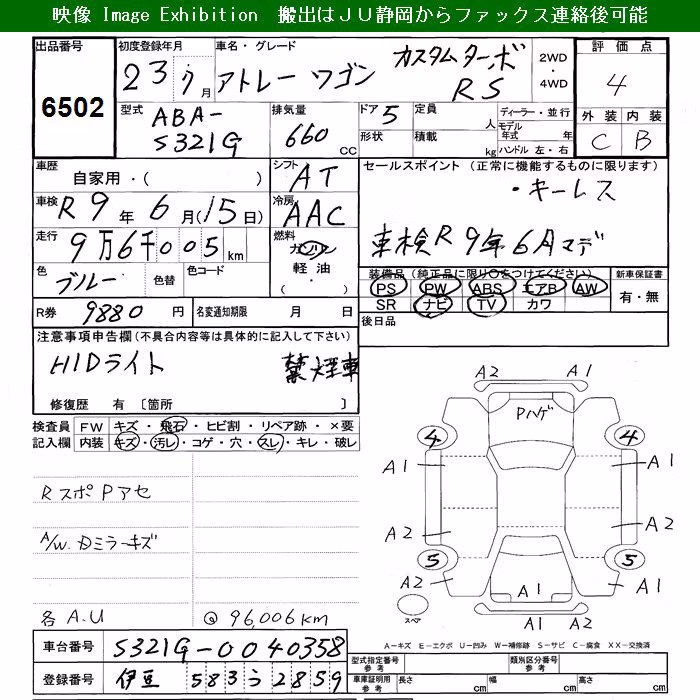 映像 Image Exhibition 搬出はＪＵ静岡からファックス連絡後可能
出品番号
6502
初度登録年月
23 7月
車名・グレード
アトレー ワゴン カスタムターボ RS
2WD
・
4WD
評価点
4
外装 内装
C B
型式
ABA-
S321G
排気量
660 CC
ドア 5
定員 人
形状
積載 kg
ディーラー・並行
モデル
年式 年
ハンドル 左・右
車歴
自家用・( )
シフト
AT
セールスポイント (正常に機能するものに限ります)
・キーレス
車検R9年6月マデ
車検
R 9年 6月(15日)
冷房
AAC
走行
9万6千005km
燃料
ガソリン
軽油
( ・ )
色
ブルー
色替
色コード
装備品 (純正品に限り○をつけてください)
PS PW ABS エアB AW
SR ナビ TV カワ
新車保証書
有・無
R券
9880円
名変通知期限 月 日
後日品
注意事項申告欄(不具合内容等は具体的に記入して下さい)
HIDライト 禁煙車
修復歴 有 〔箇所 〕
検査員
記入欄
FW キズ・飛石・ヒビ割・リペア跡・×要
内装 キズ・汚レ・コゲ・穴・スレ・キレ・破レ
RスポPアセ
A/W.Dミラーキズ
各A.U
@96,006km
A2 A1
Pハゲ
4 4
A1 A1
A2 A2
5 5
A2 A1 A1
A1
スペア
A－キズ E－エクボ U－凹み W－補修跡 S－サビ C－腐食 XX－交換済
車台番号
S321G-0040358
登録番号
伊豆 583う2859
型式指定番号
参考
類別区分番号
参考
車庫証明用
参考
長さ cm
幅 cm
高さ cm